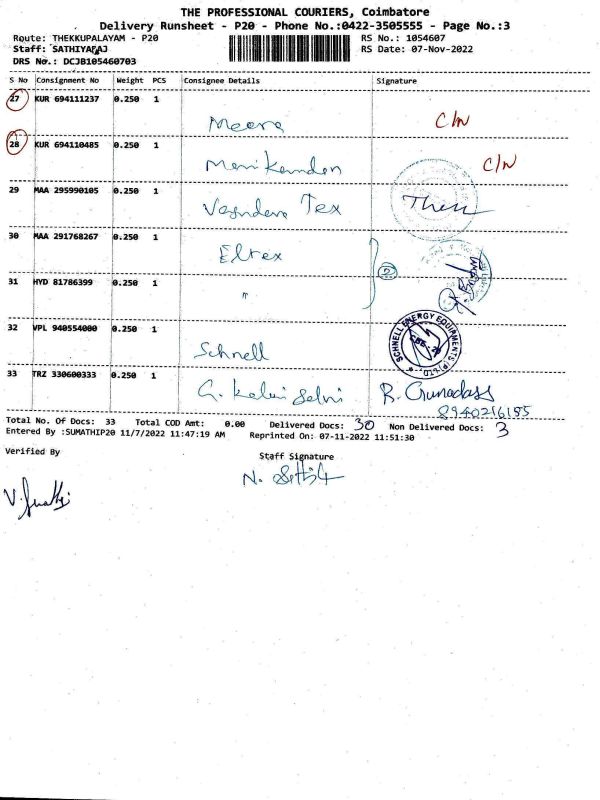 THE PROFESSIONAL COURIERS, Coimbatore
Delivery Runsheet - P20 - Phone No.:0422-3505555 - Page No.:3
Route: THEKKUPALAYAM - P20 RS No.: 1054607
Staff: SATHIYARAJ RS Date: 07-Nov-2022
DRS No.: DCJB105460703
S No Consignment No Weight PCS Consignee Details Signature
27 KUR 694111237 0.250 1
Meera C/N
28 KUR 694110485 0.250 1
Manikandan C/N
29 MAA 295990105 0.250 1
Tex
30 MAA 291768267 0.250 1
Eltex
2
31 HYD 81786399 0.250 1
"
32 VPL 940554000 0.250 1
Schnell SCHNELL ENERGY EQUIPMENTS (P) LTD.
33 TRZ 330600333 0.250 1
G. Kalai Selvi R. Gunadass
8940216155
Total No. Of Docs: 33 Total COD Amt: 0.00 Delivered Docs: 30 Non Delivered Docs: 3
Entered By :SUMATHIP20 11/7/2022 11:47:19 AM Reprinted On: 07-11-2022 11:51:30
Verified By Staff Signature